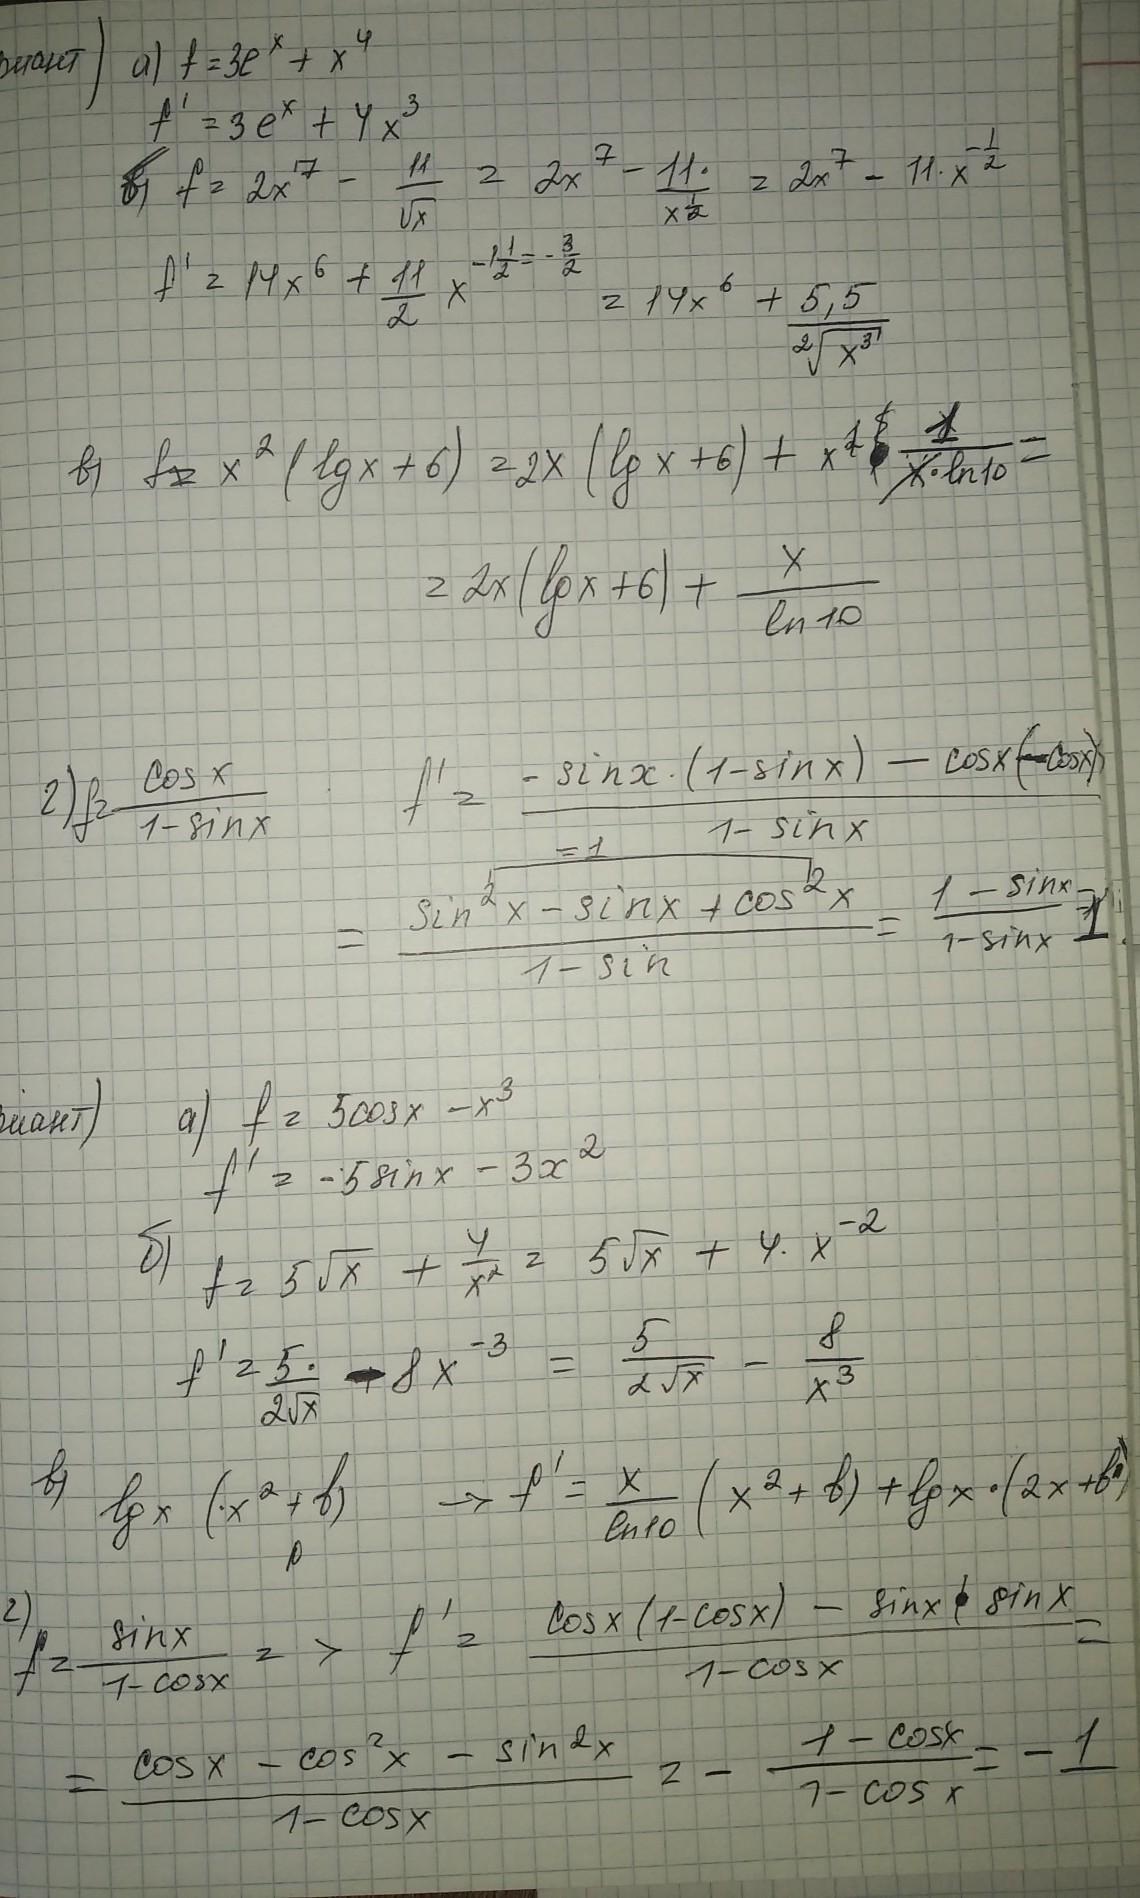 а) f = 3e^x + x^4
f' = 3e^x + 4x^3
б) f = 2x^7 - 11/√x = 2x^7 - 11·/x^(1/2) = 2x^7 - 11·x^(-1/2)
f' = 14x^6 + 11/2 x^(-1 1/2 = -3/2) = 14x^6 + 5,5/²√x^3
в) f = x^2 (lgx + 6) = 2x (lg x + 6) + x^2 1/(x·ln10) =
= 2x(lgx + 6) + x/ln10
2) f = cosx/(1-sinx) f' = (-sinx·(1-sinx) - cosx(-cosx))/(1-sinx)
=1
= (sin^2x - sinx + cos^2x)/(1-sin) = (1-sinx)/(1-sinx) = 1
а) f = 5cosx - x^3
f' = -5sinx - 3x^2
б) f = 5√x + 4/x^2 = 5√x + 4·x^(-2)
f' = 5·/2√x - 8x^(-3) = 5/2√x - 8/x^3
в) lgx (·x^2 + b) → f' = x/ln10 (x^2 + b) + lgx·(2x + b)
2) f = sinx/(1-cosx) => f' = (cosx(1-cosx) - sinx · sinx)/(1-cosx) =
= (cosx - cos^2x - sin^2x)/(1-cosx) = - (1-cosx)/(1-cosx) = -1